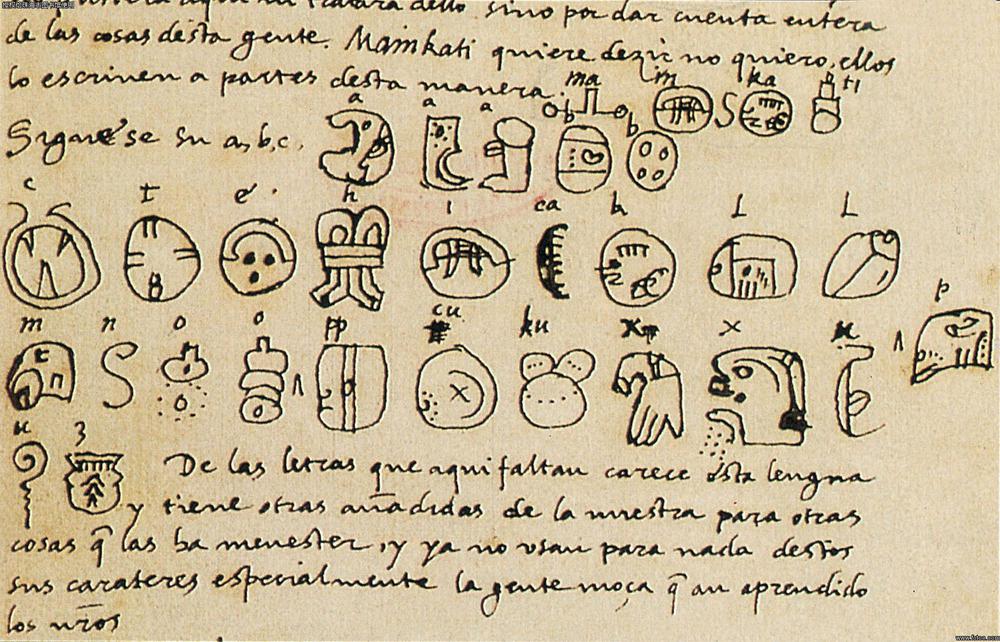 aqui ni tratara dello sino por dar cuenta entera
de las cosas desta gente. Mainkati quiere dezir no quiero, ellos
lo escriven a partes desta manera.
ma i n ka ti
Siguese su a, b, c.
a a a b b
c t e h i ca k l l
m n o o pp cu ku x x u p
u z
De las letras que aqui faltan carece esta lengua
y tiene otras añadidas de la nuestra para otras
cosas q̃ las ha menester, y ya no usan para nada destos
sus carateres especialmente la gente moça q̃ an aprendido
los nr̃os
www.fotoe.com